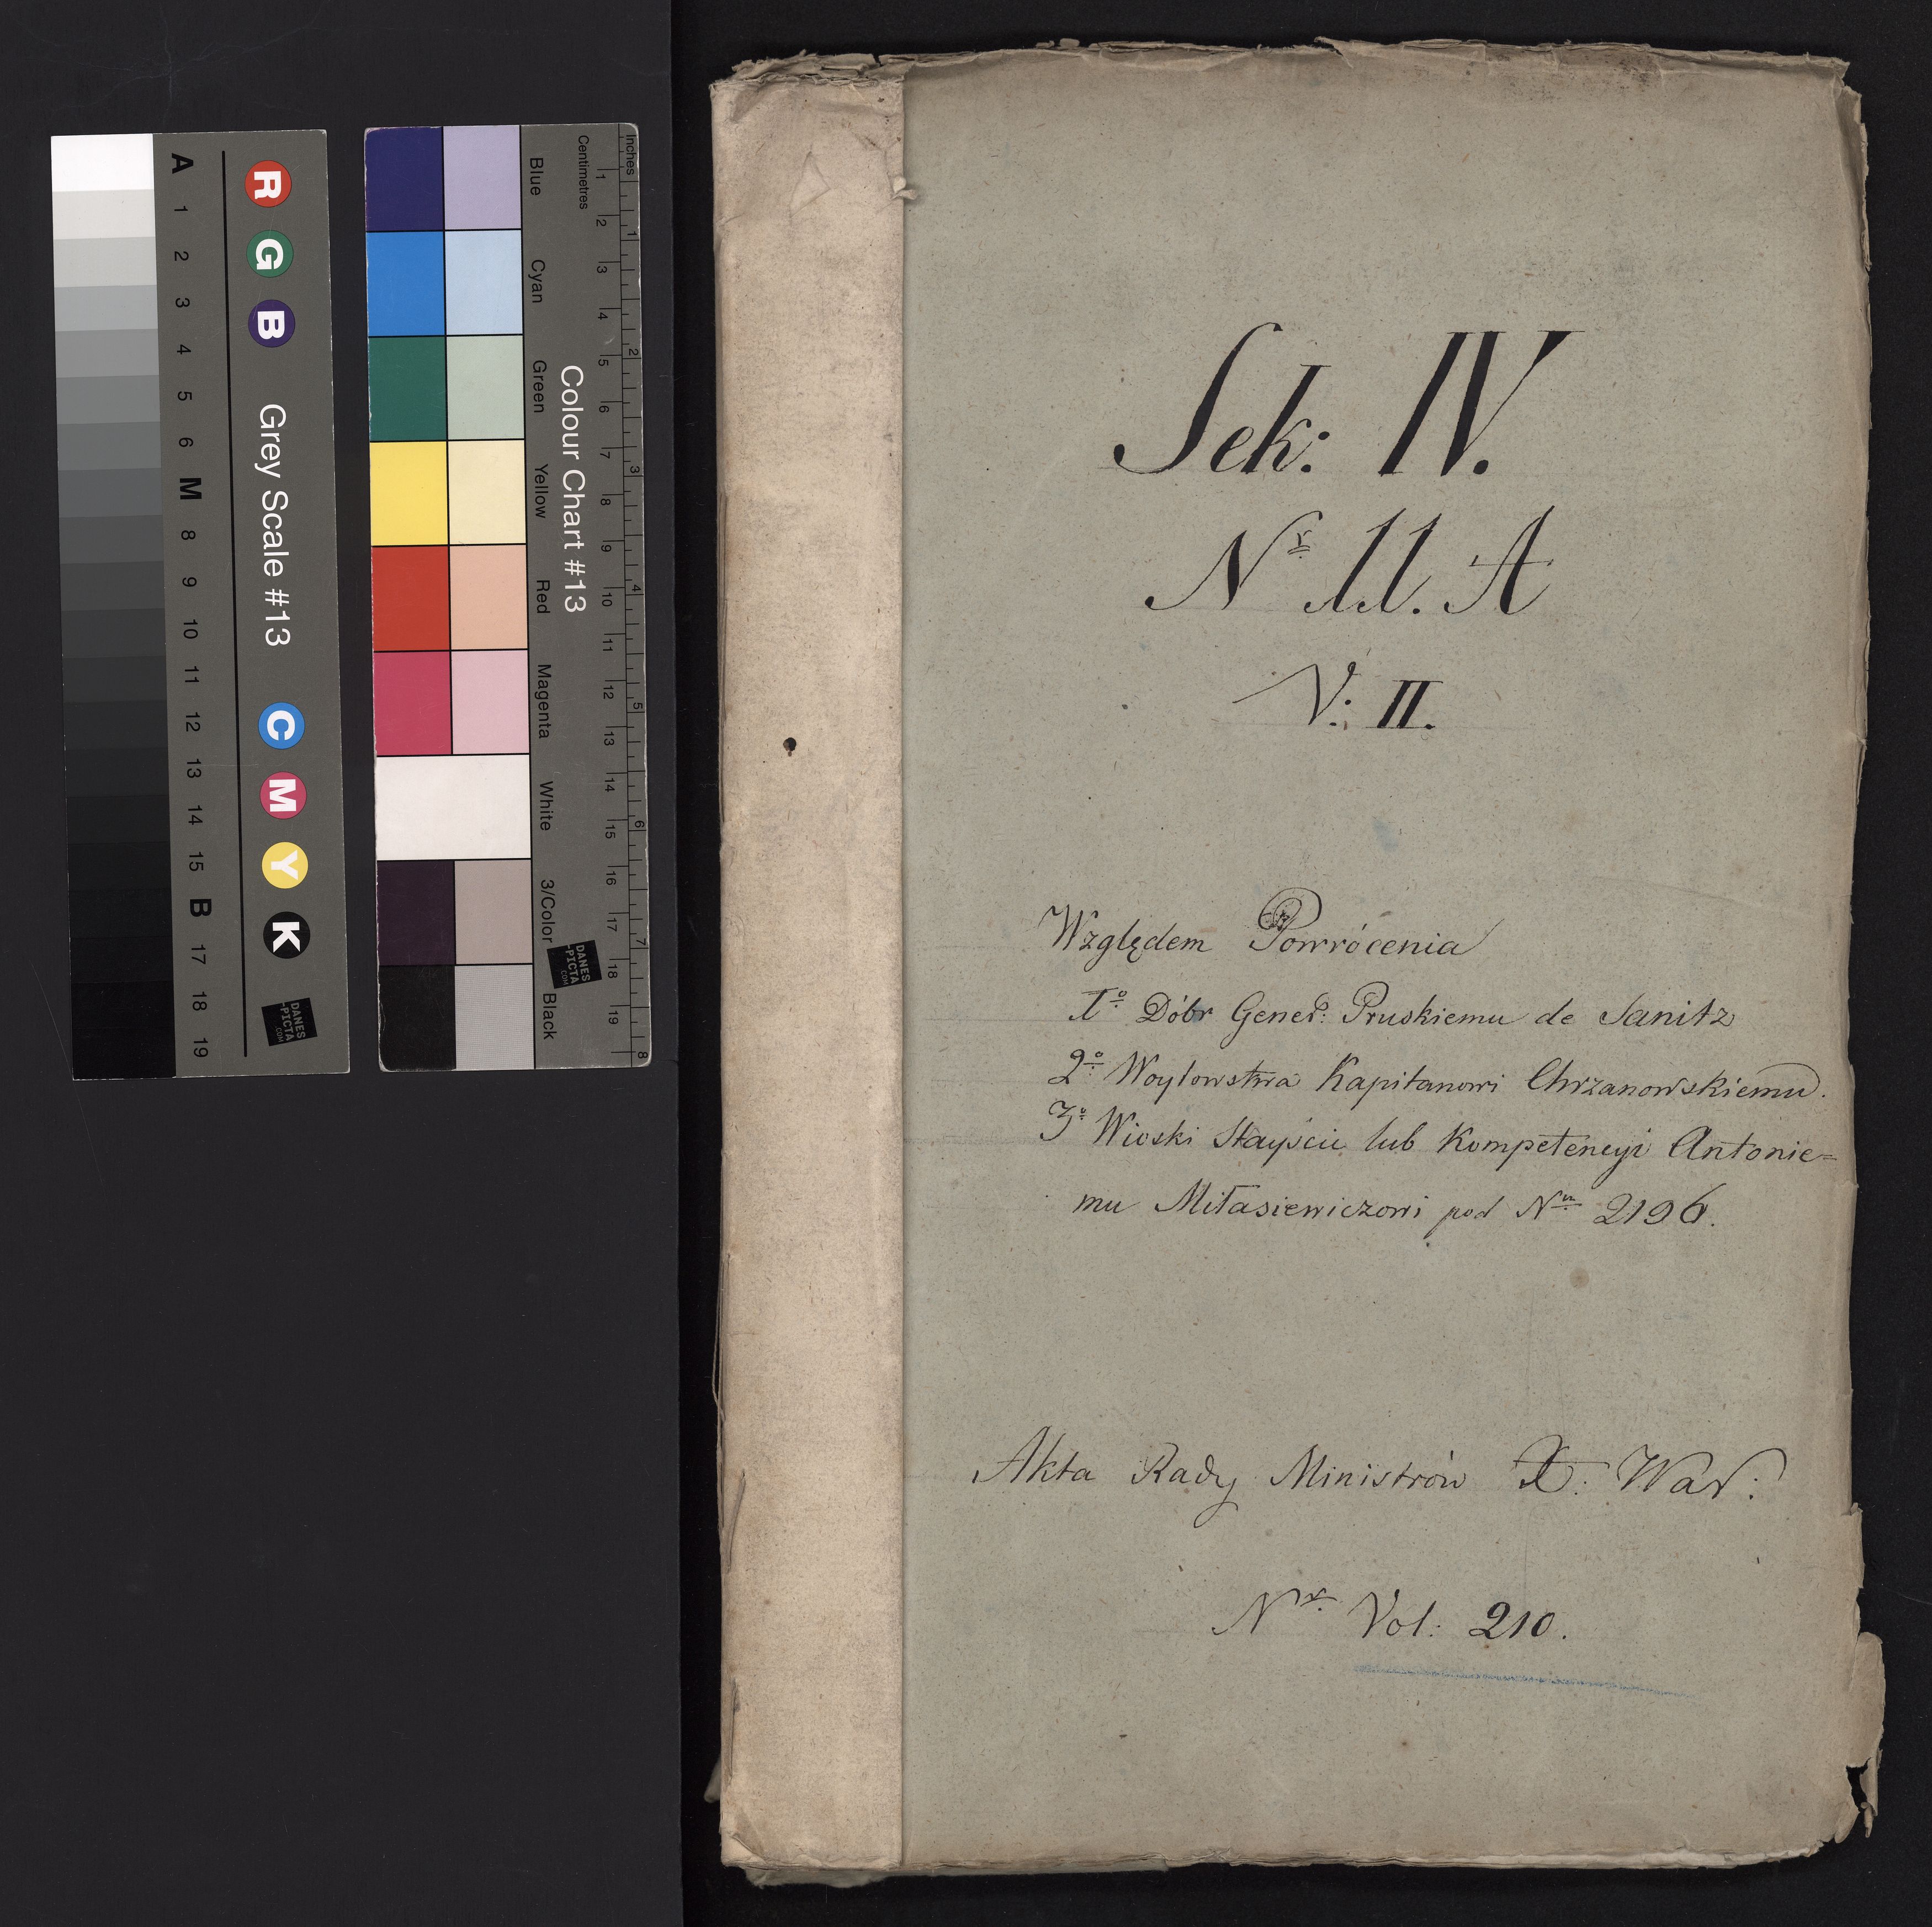 Sek: IV.
Nr 11. A
V: II.
Względem Powrócenia
1o Dóbr Gener: Pruskiemu de Sanitz
2o Woytowstwa Kapitanowi Chrzanowskiemu.
3o Wioski Stayscie lub Kompetencyi Antonie=
mu Miłasiewiczowi pod Nm 2196.
Akta Rady Ministrów X: War:
Nr Vol: 210.
A 1 2 3 4 5 6 M 8 9 10 11 12 13 14 15 B 17 18 19
R G B Grey Scale #13 C M Y K
DANES
-PICTA
.COM
Blue Cyan Green Yellow Red Magenta White 3/Color Black
Colour Chart #13
DANES
-PICTA
.COM
Centimetres 1 2 3 4 5 6 7 8 9 10 11 12 13 14 15 16 17 18 19
Inches 1 2 3 4 5 6 7 8